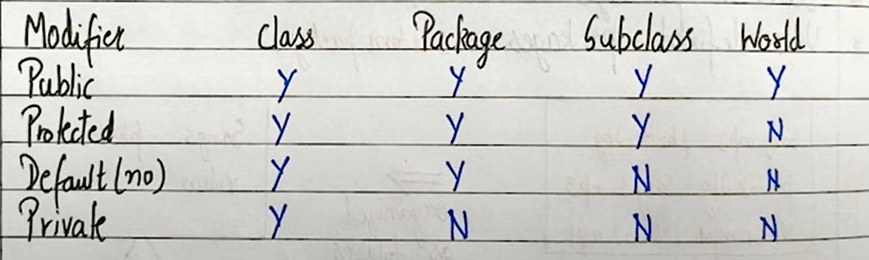 Modifier Class Package Subclass World
Public Y Y Y Y
Protected Y Y Y N
Default (no) Y Y N N
Private Y N N N